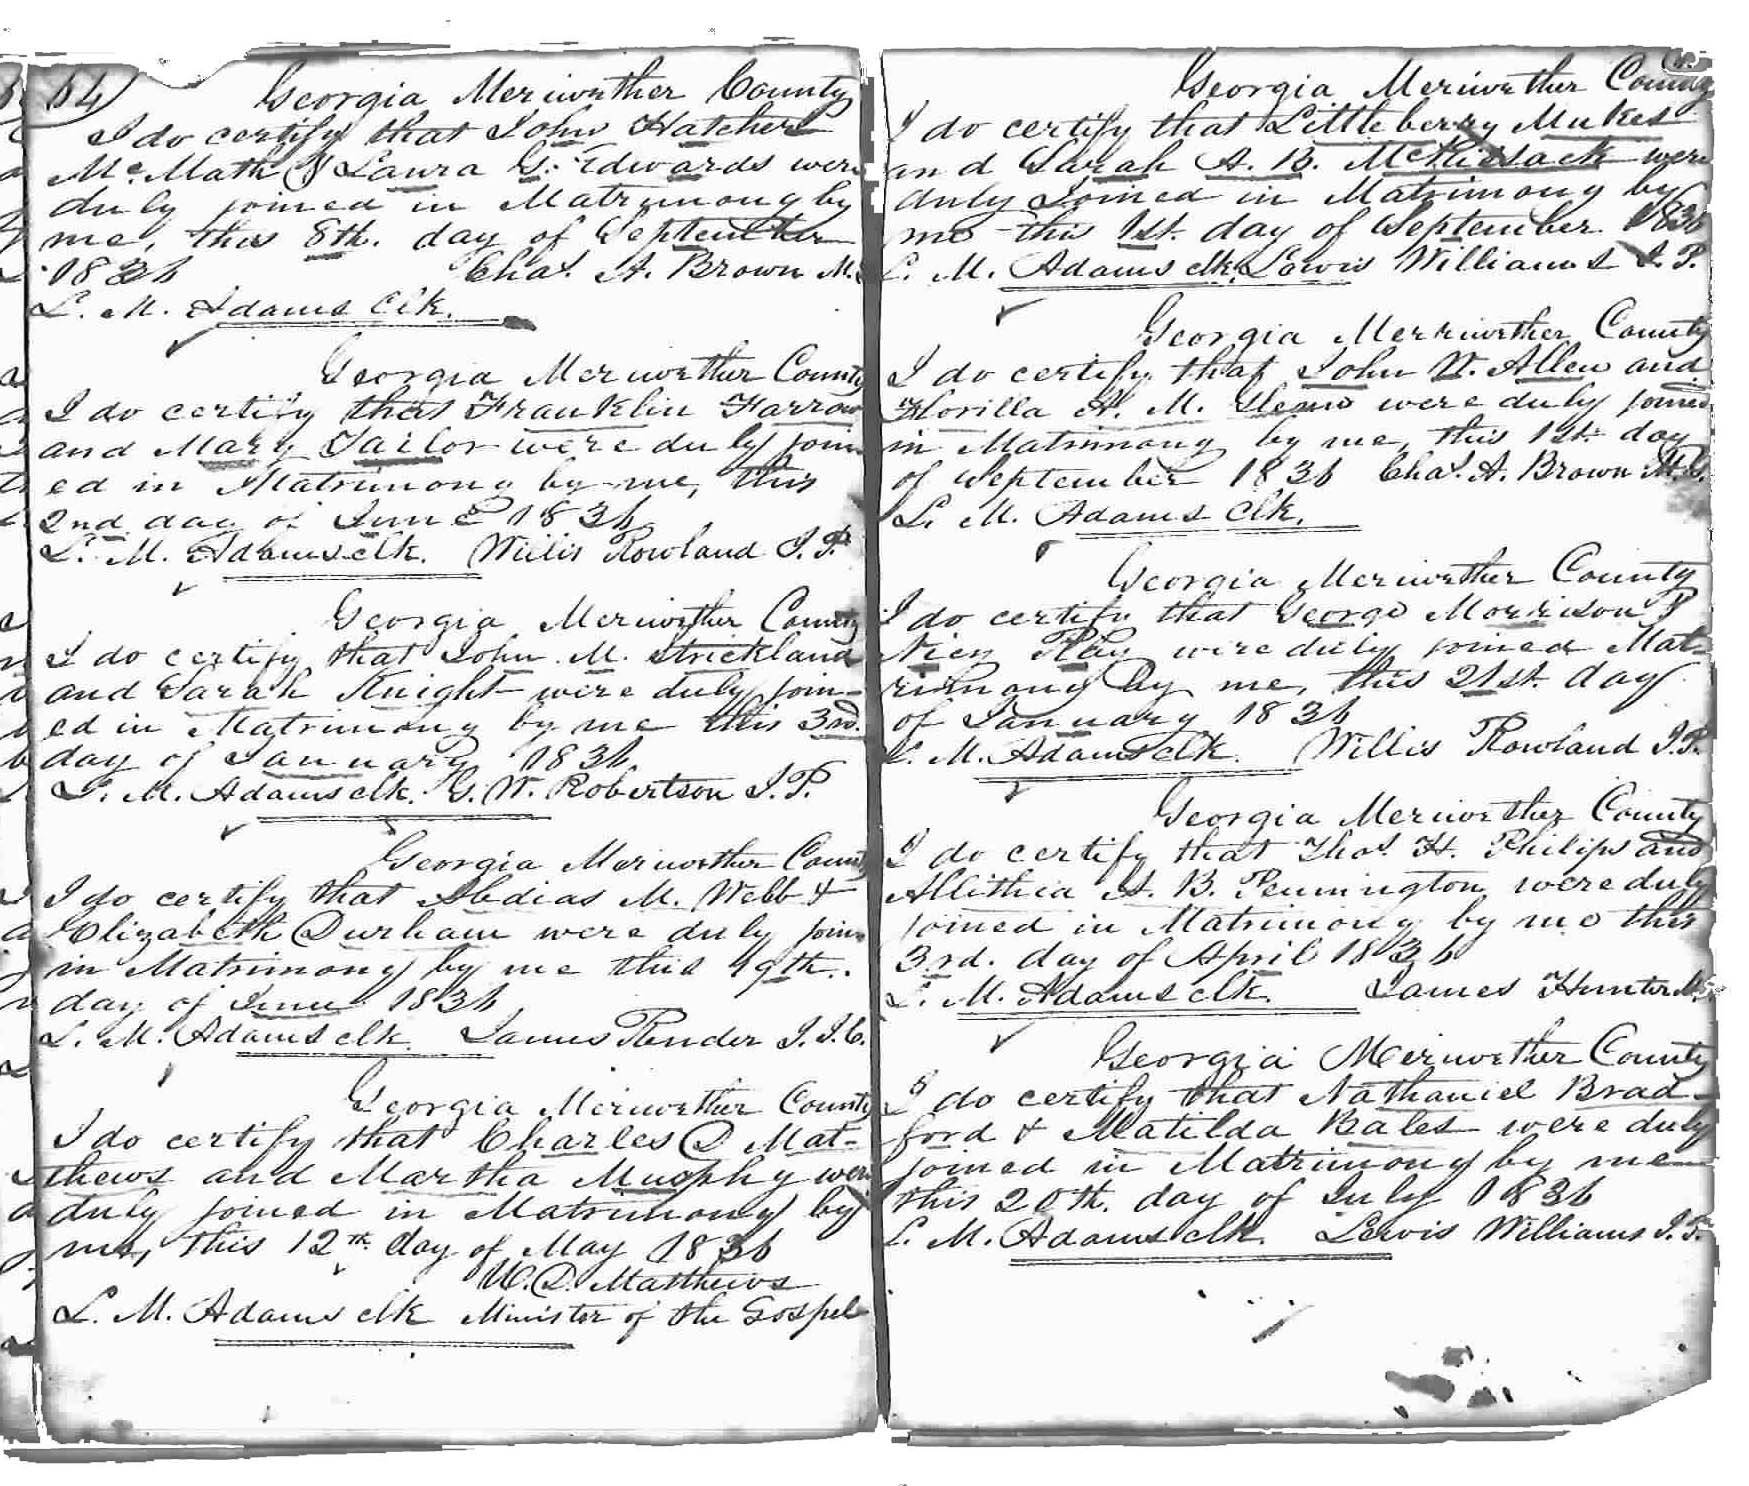 64
Georgia Meriwether County
I do certify that John Hatcher
McMath & Laura G. Edwards were
duly joined in Matrimony by
me, this 8th. day of September
1836 Chas. A. Brown M.
L. M. Adams Clk.
Georgia Meriwether County
I do certify that Franklin Farrow
and Mary Tailor were duly join
ed in Matrimony by me, this
2nd day of June 1836
L. M. Adams clk. Willis Rowland J. P.
Georgia Meriwether County
I do certify that John M. Strickland
and Sarah Knight were duly join-
ed in Matrimony by me this 3rd.
day of January 1836
L. M. Adams clk. G. W. Robertson J. P.
Georgia Meriwether County
I do certify that Abdias M. Webb &
Elizabeth Durham were duly join
in Matrimony by me this 19th.
day of June 1836
L. M. Adams clk. James Render J. I. C.
Georgia Meriwether County
I do certify that Charles D Mat-
thews and Martha Murphy were
duly joined in Matrimony by
me, this 12th. day of May 1836
W. D. Matthews
L. M. Adams clk Minister of the Gospel
Georgia Meriwether County
I do certify that Littleberry Mukes
and Sarah A. B. McKissack were
duly Joined in Matrimony by
me this 1st. day of September 1836
L. M. Adams clk. Lewis Williams J. P.
Georgia Meriwether County
I do certify that John W. Allen and
Florilla A. M. were duly joined
in Matrimony by me, this 1st. day
of September 1836 Chas. A. Brown M. G.
L. M. Adams Clk.
Georgia Meriwether County
I do certify that George Morrison &
Nicy Ray were duly joined Mat-
rimony by me, this 21st. day
of January 1836
L. M. Adams clk. Willis Rowland J. P.
Georgia Meriwether County
I do certify that Thos. H. Philips and
Allithia A. B. Pennington were duly
joined in Matrimony by me this
3rd. day of April 1836
L. M. Adams clk. James Hunter
Georgia Meriwether County
I do certify that Nathaniel Brad-
ford & Matilda Bales were duly
joined in Matrimony by me
this 20th. day of July 1836
L. M. Adams clk. Lewis Williams J. P.